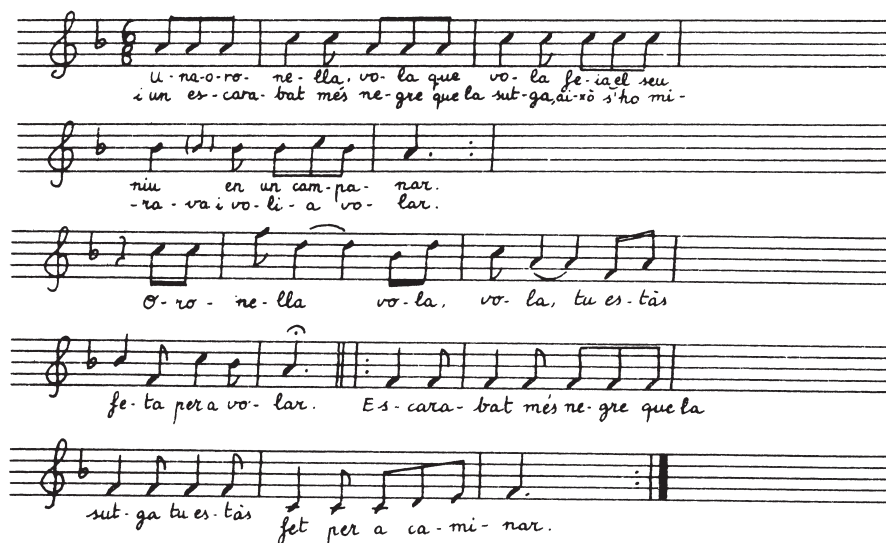 U-na-o-ro- ne-lla, vo-la que vo-la fe-ia el seu
i un es-cara-bat més ne-gre que la sut-ga, ai-xò s'ho mi-
niu en un cam-pa-nar.
-ra-va i vo-li-a vo-lar.
O-ro-ne-lla vo-la, vo-la, tu es-tàs
fe-ta per a vo-lar. Es-cara-bat més ne-gre que la
sut-ga tu es-tàs fet per a ca-mi-nar.